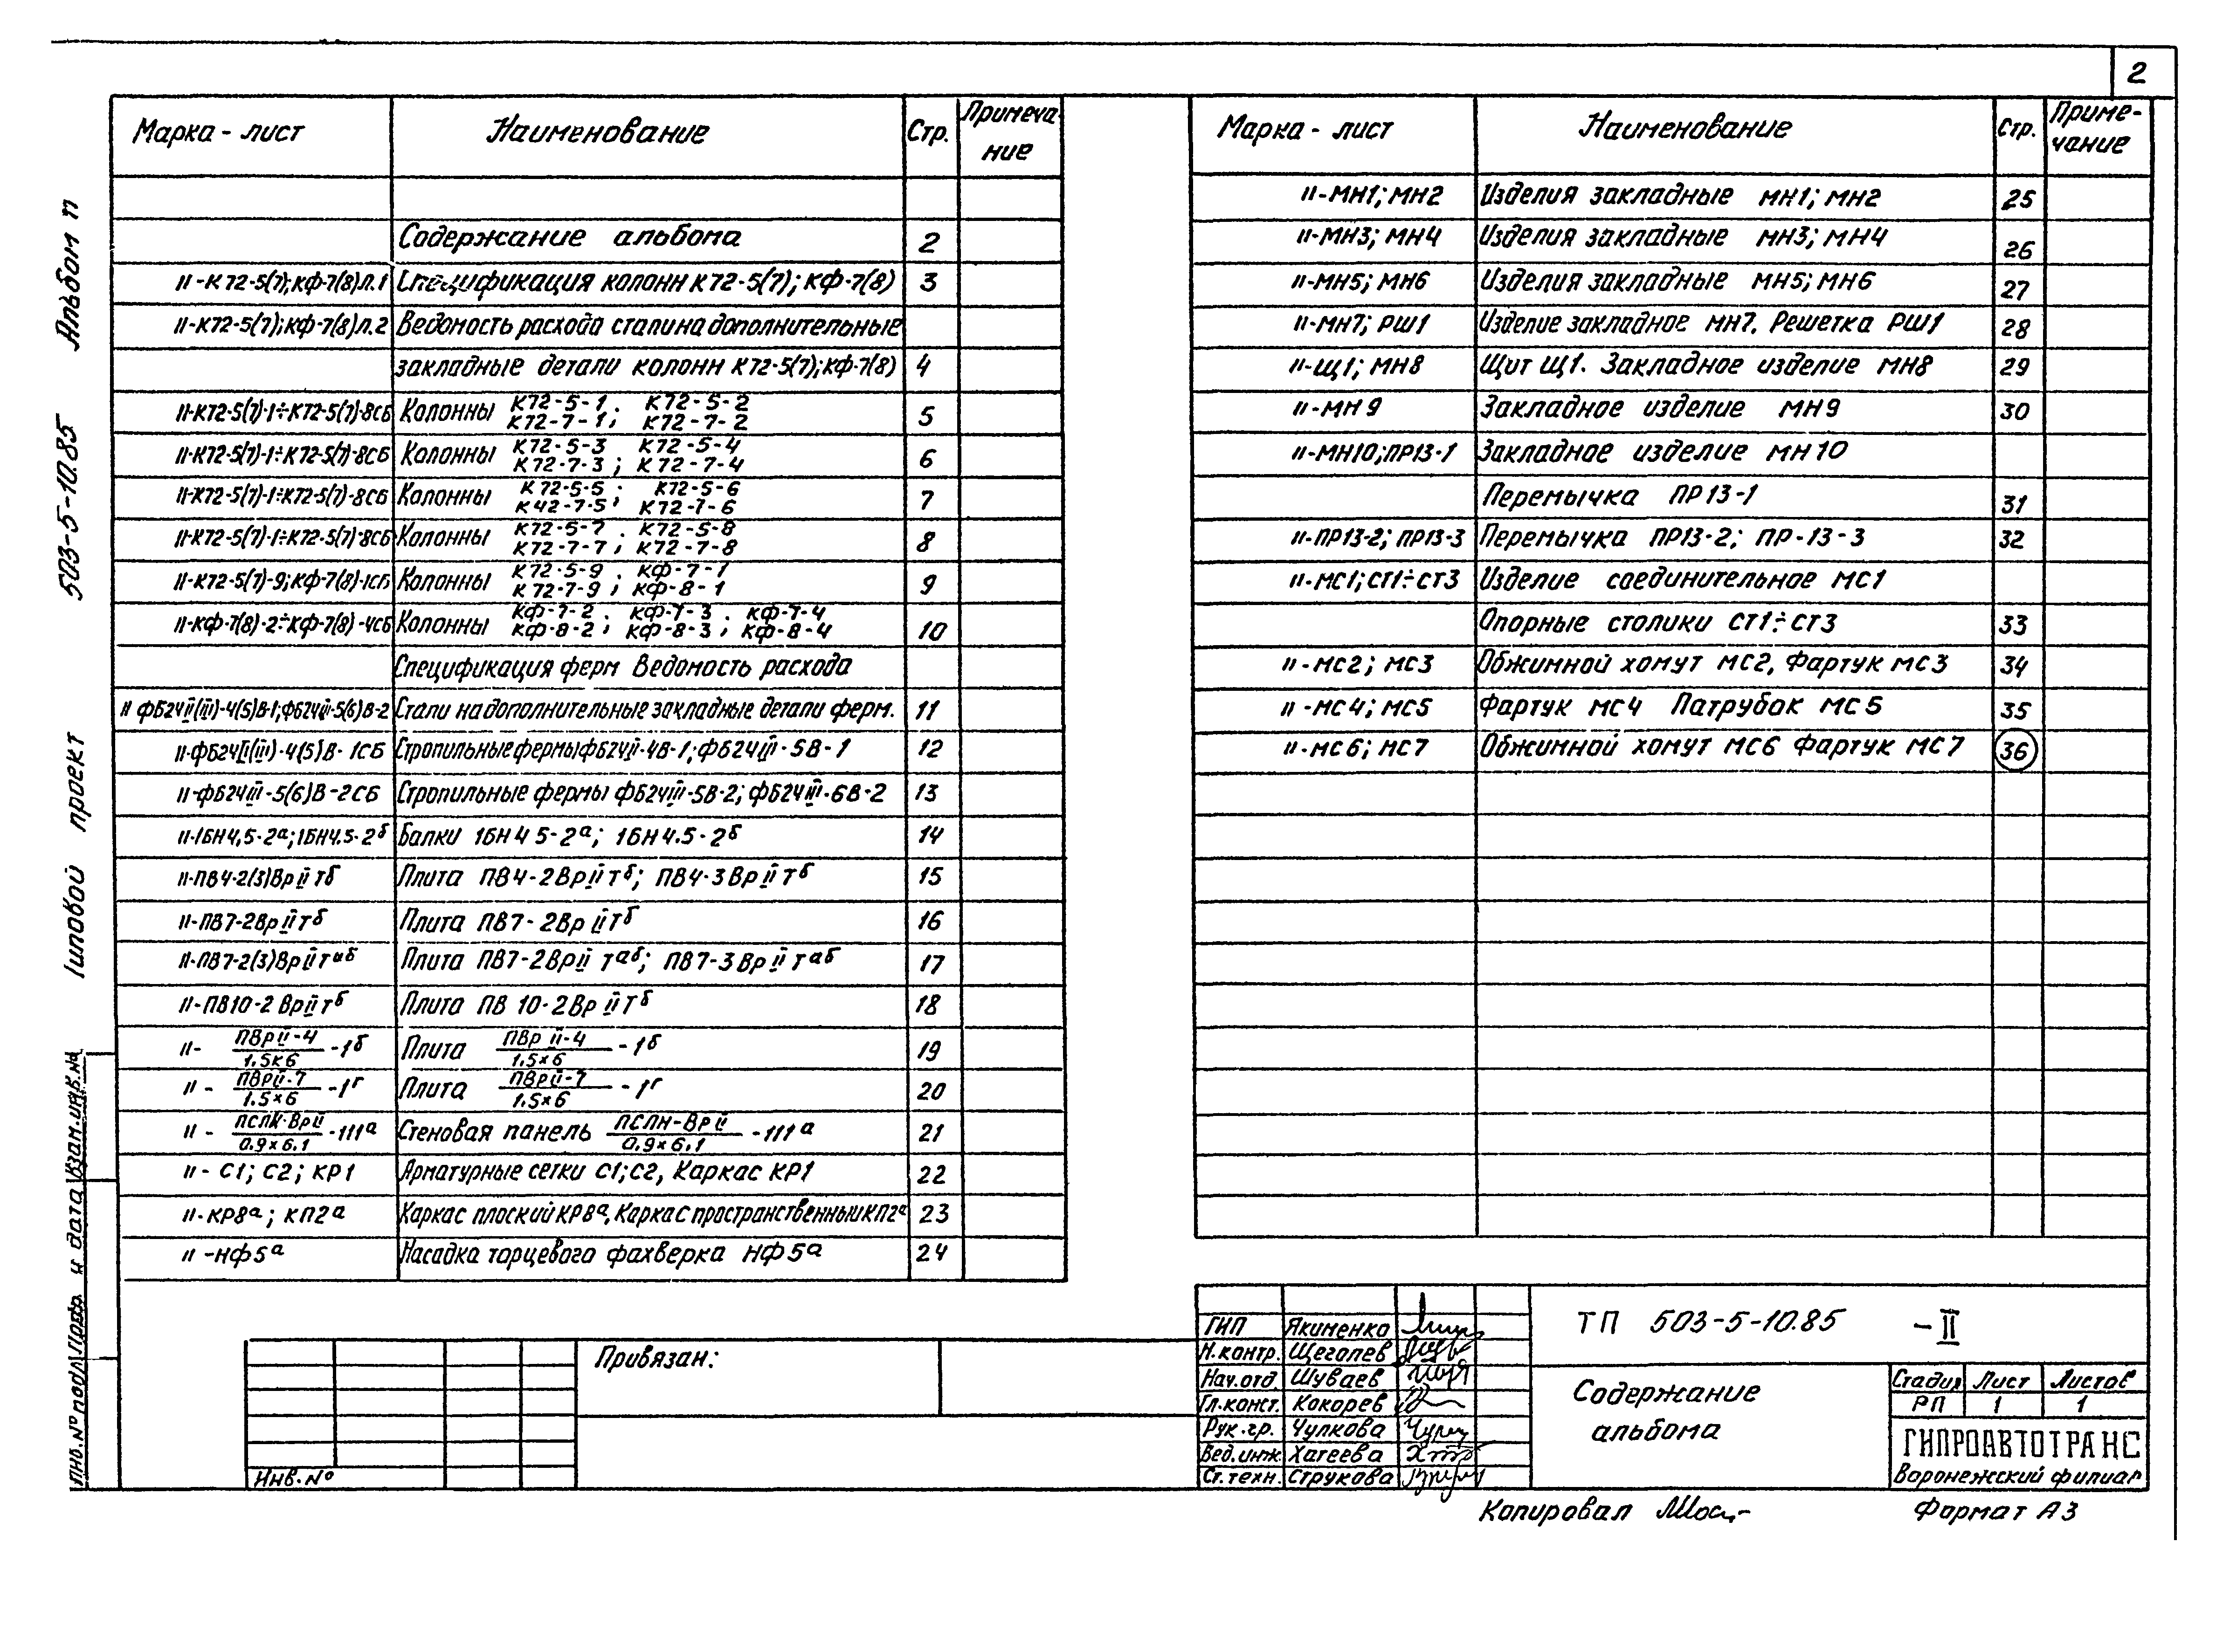 2
Альбом II
503-5-10.85
Типовой проект
Марка - лист Наименование Стр. Примеча-
ние
Содержание альбома 2
II-К72-5(7); КФ-7(8) Л.1 Спецификация колонн К72-5(7); КФ-7(8) 3
II-К72-5(7); КФ-7(8) Л.2 Ведомость расхода стали на дополнительные
закладные детали колонн К72-5(7); КФ-7(8) 4
II-К72-5(7)-1÷К72-5(7)-8СБ Колонны К72-5-1; К72-5-2
К72-7-1; К72-7-2 5
II-К72-5(7)-1÷К72-5(7)-8СБ Колонны К72-5-3 К72-5-4
К72-7-3; К72-7-4 6
II-К72-5(7)-1÷К72-5(7)-8СБ Колонны К72-5-5; К72-5-6
К42-7-5; К72-7-6 7
II-К72-5(7)-1÷К72-5(7)-8СБ Колонны К72-5-7; К72-5-8
К72-7-7; К72-7-8 8
II-К72-5(7)-9; КФ-7(8)-1СБ Колонны К72-5-9; КФ-7-1
К72-7-9; КФ-8-1 9
II-КФ-7(8)-2÷КФ-7(8)-4СБ Колонны КФ-7-2; КФ-7-3; КФ-7-4
КФ-8-2; КФ-8-3; КФ-8-4 10
Спецификация ферм Ведомость расхода
II ФБ24II(III)-4(5)В-1; ФБ24III-5(6)В-2 Стали на дополнительные закладные детали ферм. 11
II-ФБ24II(III)-4(5)В-1СБ Стропильные фермы ФБ24II-4В-1; ФБ24III-5В-1 12
II-ФБ24III-5(6)В-2СБ Стропильные фермы ФБ24III-5В-2; ФБ24III-6В-2 13
II-1БН4,5-2а; 1БН4.5-2б Балки 1БН4 5-2а; 1БН4.5-2б 14
II-ПВ4-2(3)ВрIIТб Плита ПВ4-2ВрIIТб; ПВ4-3ВрIIТб 15
II-ПВ7-2ВрIIТб Плита ПВ7-2ВрIIТб 16
II-ПВ7-2(3)ВрIIТаб Плита ПВ7-2ВрII Таб; ПВ7-3ВрIIТаб 17
II-ПВ10-2 ВрIIТб Плита ПВ 10-2ВрIIТб 18
II- ПВрII-4/1.5×6 -1б Плита ПВрII-4/1.5×6 -1б 19
II- ПВрII-7/1.5×6 -1г Плита ПВрII-7/1.5×6 -1г 20
II- ПСЛК-ВрII/0.9×6.1 -111а Стеновая панель ПСЛН-ВрII/0.9×6.1 -111а 21
II-С1; С2; КР1 Арматурные сетки С1; С2, Каркас КР1 22
II-КР8а; КП2а Каркас плоский КР8а, Каркас пространственный КП2а 23
II-НФ5а Насадка торцевого фахверка НФ5а 24
Марка - лист Наименование Стр. Приме-
чание
II-МН1; МН2 Изделия закладные МН1; МН2 25
II-МН3; МН4 Изделия закладные МН3; МН4 26
II-МН5; МН6 Изделия закладные МН5; МН6 27
II-МН7; РШ1 Изделие закладное МН7. Решетка РШ1 28
II-Щ1; МН8 Щит Щ1. Закладное изделие МН8 29
II-МН9 Закладное изделие МН9 30
II-МН10; ПР13-1 Закладное изделие МН10
Перемычка ПР13-1 31
II-ПР13-2; ПР13-3 Перемычка ПР13-2; ПР-13-3 32
II-МС1; СТ1÷СТ3 Изделие соединительное МС1
Опорные столики СТ1÷СТ3 33
II-МС2; МС3 Обжимной хомут МС2, Фартук МС3 34
II-МС4; МС5 Фартук МС4 Патрубок МС5 35
II-МС6; МС7 Обжимной хомут МС6 Фартук МС7 36
Взам.инв.№
Подр. и дата
Инв.№ подл
Привязан:
Инв.№
ГИП Якименко
Н.контр. Щеголев
Нач.отд. Шуваев
Гл.конст. Кокорев
Рук.гр. Чулкова
Вед.инж. Хатеева
Ст.техн. Струкова
ТП 503-5-10.85 -II
Содержание
альбома
Стадия Лист Листов
РП 1 1
ГИПРОАВТОТРАНС
Воронежский филиал
Копировал
Формат А3